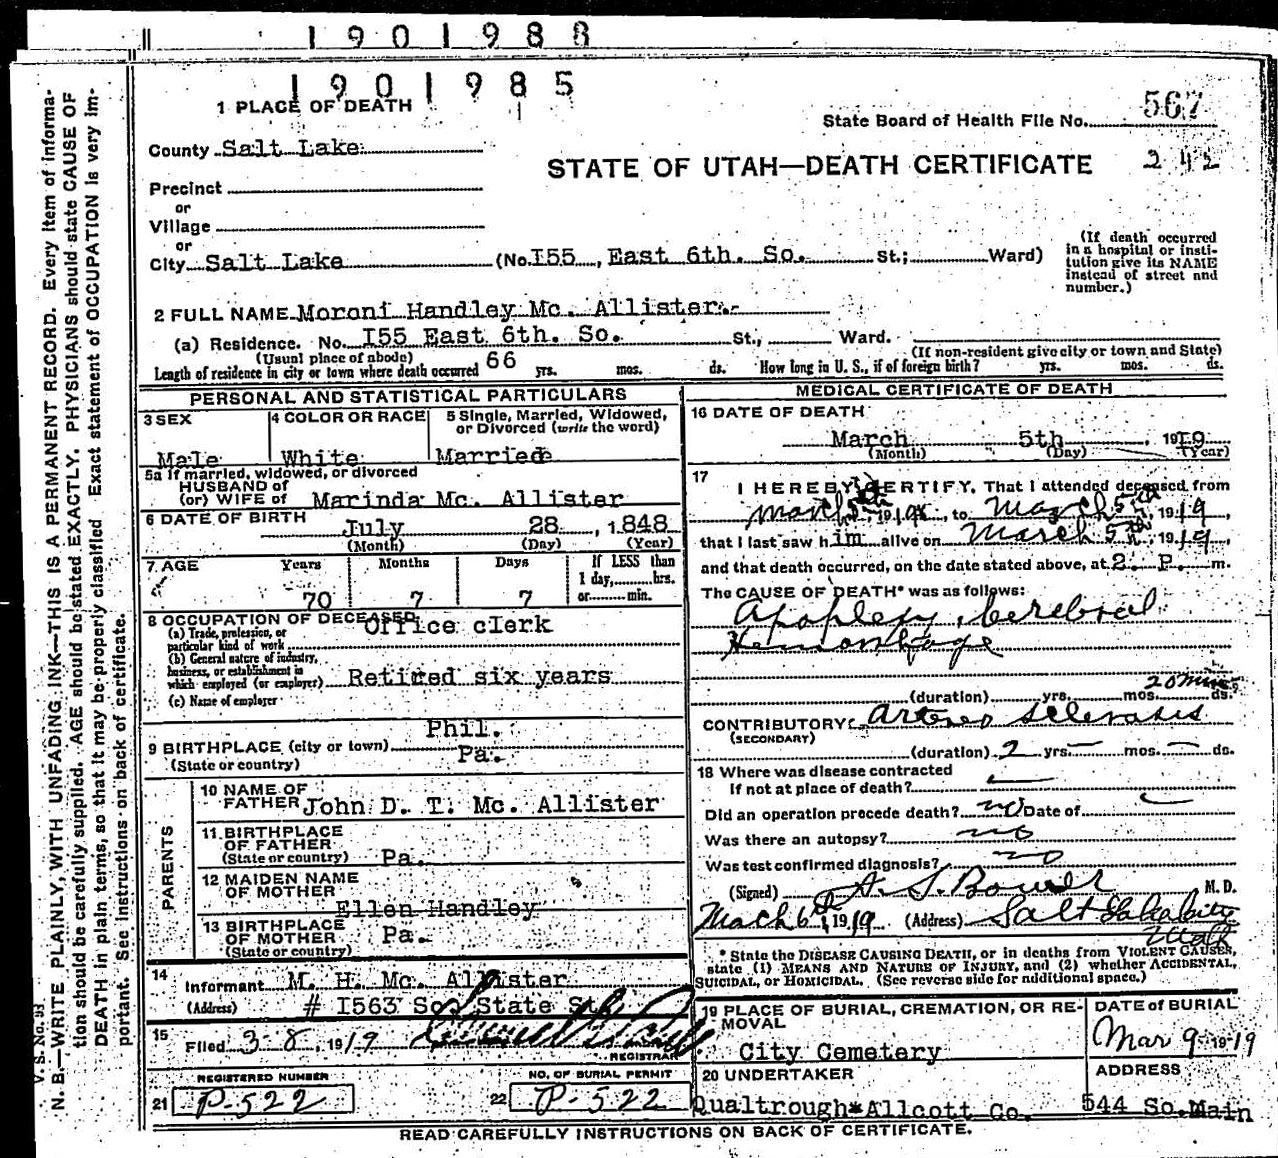 1901988
1901985
1 PLACE OF DEATH
State Board of Health File No. 567
County Salt Lake
STATE OF UTAH—DEATH CERTIFICATE 242
Precinct
or
Village
or
City Salt Lake (No. I55, East 6th. So. St.; Ward)
(If death occurred in a hospital or institution give its NAME instead of street and number.)
2 FULL NAME Moroni Handley Mc. Allister.-
(a) Residence. No. I55 East 6th. So. St., Ward.
(Usual place of abode) (If non-resident give city or town and State)
Length of residence in city or town where death occurred 66 yrs. mos. ds. How long in U. S., if of foreign birth? yrs. mos. ds.
PERSONAL AND STATISTICAL PARTICULARS
3 SEX
Male
4 COLOR OR RACE
White
5 Single, Married, Widowed, or Divorced (write the word)
Married
5a If married, widowed, or divorced
HUSBAND of
(or) WIFE of Marinda Mc. Allister
6 DATE OF BIRTH July 28, 1848
(Month) (Day) (Year)
7 AGE Years Months Days If LESS than
1 day, hrs.
70 7 7 or min.
8 OCCUPATION OF DECEASED
(a) Trade, profession, or particular kind of work Office clerk
(b) General nature of industry, business, or establishment in which employed (or employer) Retired six years
(c) Name of employer
Phil.
9 BIRTHPLACE (city or town) Pa.
(State or country)
PARENTS
10 NAME OF FATHER John D. T. Mc. Allister
11 BIRTHPLACE OF FATHER
(State or country) Pa.
12 MAIDEN NAME OF MOTHER
Ellen Handley
13 BIRTHPLACE OF MOTHER Pa.
(State or country)
14 Informant M. H. Mc. Allister
(Address) # I563 So. State St.
15 Filed 3-8, 1919
REGISTRAR
REGISTERED NUMBER NO. OF BURIAL PERMIT
21 P-522 22 P-522
MEDICAL CERTIFICATE OF DEATH
16 DATE OF DEATH
March 5th, 1919
(Month) (Day) (Year)
17 I HEREBY CERTIFY, That I attended deceased from
March 5th, 1919, to March 5th, 1919,
that I last saw him alive on March 5th, 1919,
and that death occurred, on the date stated above, at 2. P. m.
The CAUSE OF DEATH* was as follows:
Apoplexy, Cerebral
Hemorrhage
20 mins
(duration) yrs. mos. ds.
CONTRIBUTORY Arterio Sclerosis
(SECONDARY)
(duration) 2 yrs. — mos. — ds.
18 Where was disease contracted
If not at place of death? —
Did an operation precede death? no Date of
Was there an autopsy? no
Was test confirmed diagnosis? no
(Signed) A. S. Bower M. D.
Mach 6th, 1919 (Address) Salt Lake City
Utah
* State the DISEASE CAUSING DEATH, or in deaths from VIOLENT CAUSES,
state (1) MEANS AND NATURE OF INJURY, and (2) whether ACCIDENTAL,
SUICIDAL, or HOMICIDAL. (See reverse side for additional space.)
19 PLACE OF BURIAL, CREMATION, OR REMOVAL
City Cemetery
DATE of BURIAL
Mar 9- 1919
20 UNDERTAKER
Qualtrough*Allcott Co.
ADDRESS
544 So. Main
READ CAREFULLY INSTRUCTIONS ON BACK OF CERTIFICATE.
V. S. No. 93
N. B.—WRITE PLAINLY, WITH UNFADING INK—THIS IS A PERMANENT RECORD. Every item of informa-
tion should be carefully supplied. AGE should be stated EXACTLY. PHYSICIANS should state CAUSE OF
DEATH in plain terms, so that it may be properly classified. Exact statement of OCCUPATION is very im-
portant. See instructions on back of certificate.